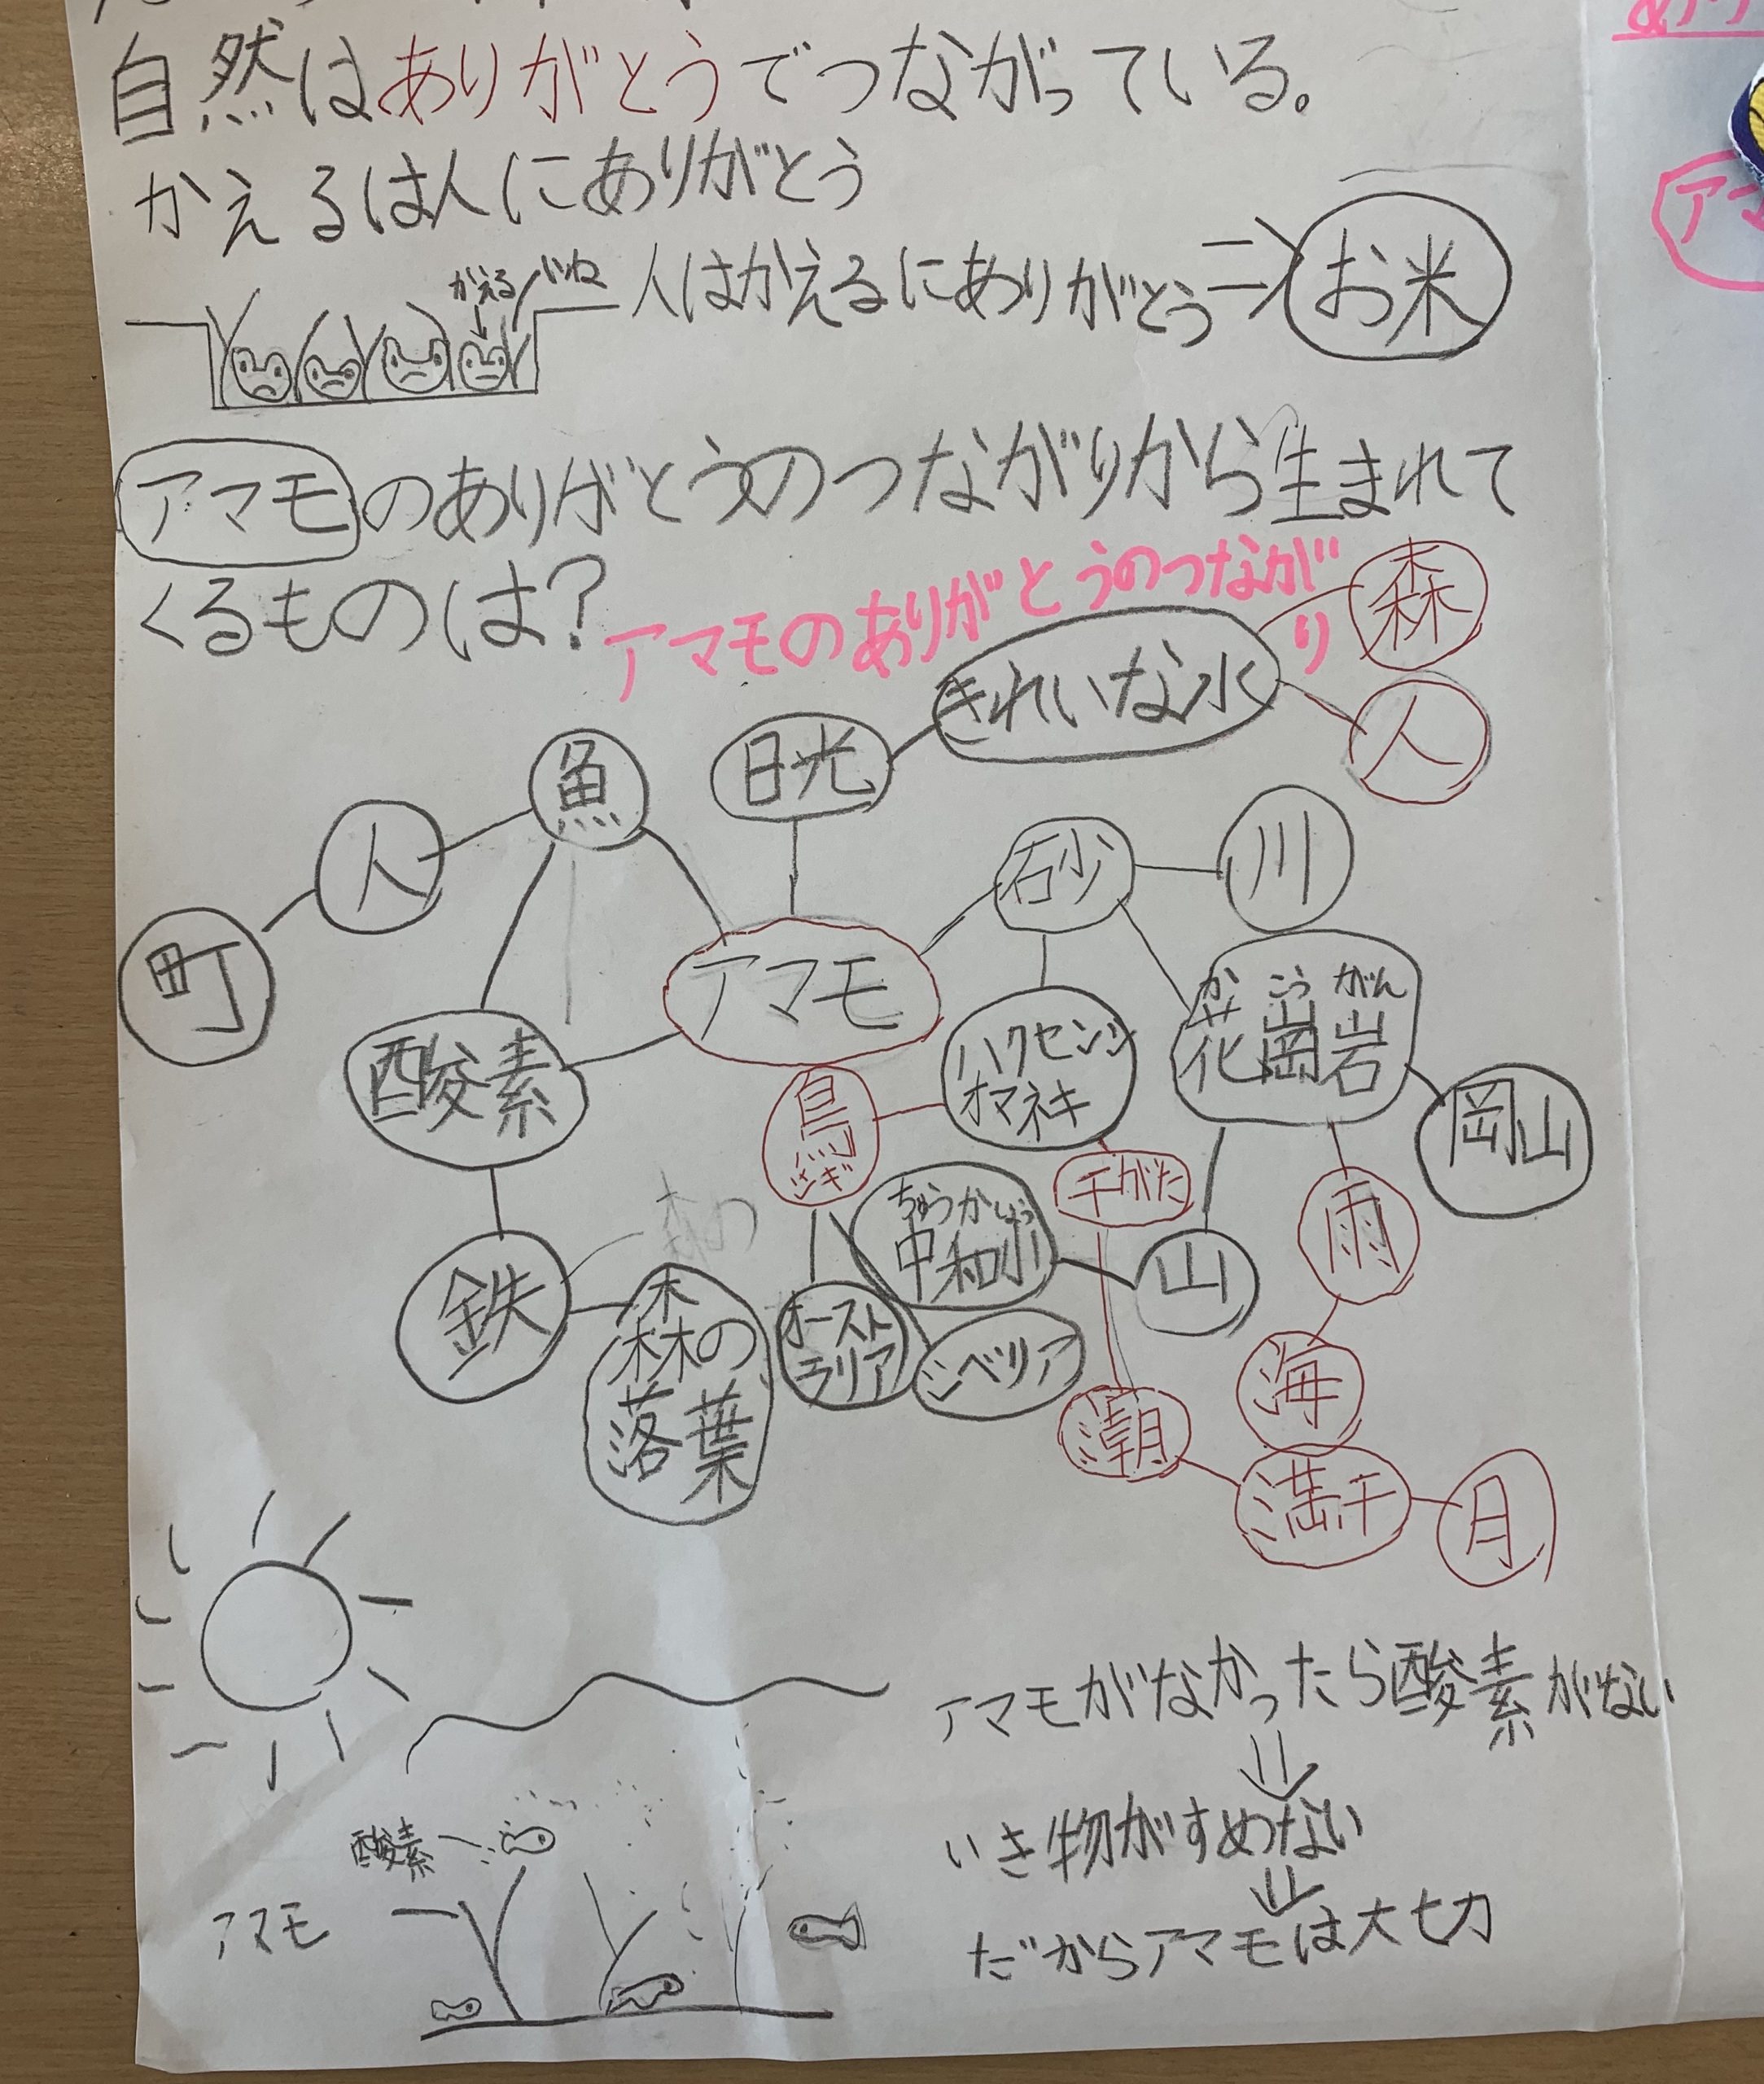 自然はありがとうでつながっている。
かえるは人にありがとう
かえる
いね
人はかえるにありがとう⇒お米
アマモのありがとうのつながりから生まれて
くるものは?
アマモのありがとうのつながり
森
きれいな水
人
日光
魚
人
町
砂
川
アマモ
酸素
かこうがん
花崗岩
ハクセンシ
オマネキ
岡山
鳥
シギ
干がた
雨
ちゅうかぶつ
中和物
山
鉄
森の
落葉
オースト
ラリア
シベリア
海
潮
満干
月
アマモがなかったら酸素がない
いき物がすめない
だからアマモは大切
酸素
アマモ